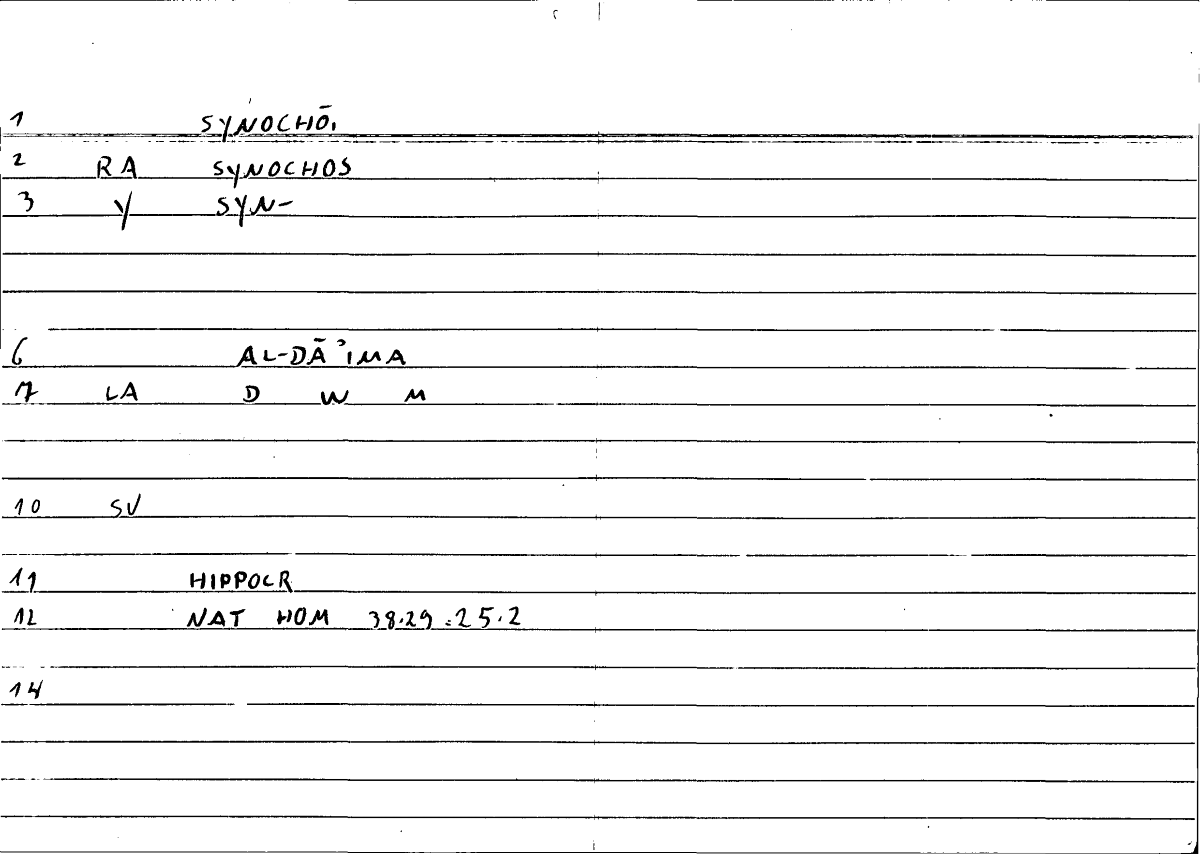 1 SYNOCHŌI
2 RA SYNOCHOS
3 Y SYN-
6 AL-DĀʾIMA
7 LA D W M
10 SV
11 HIPPOCR
12 NAT HOM 38.29 : 25.2
14